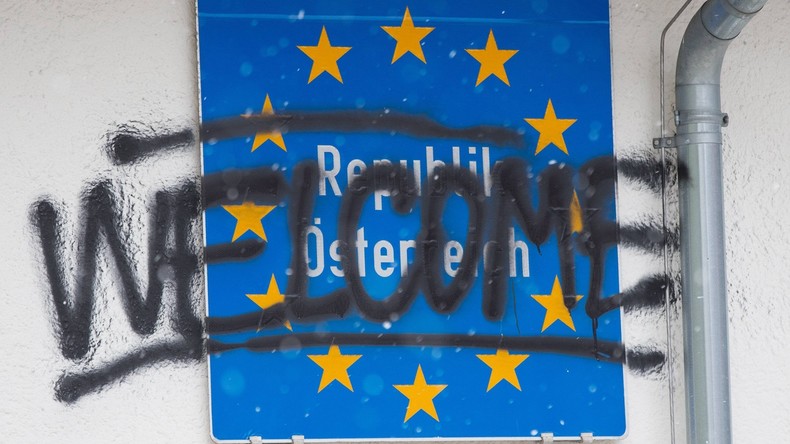 Republik
WELCOME
Österreich